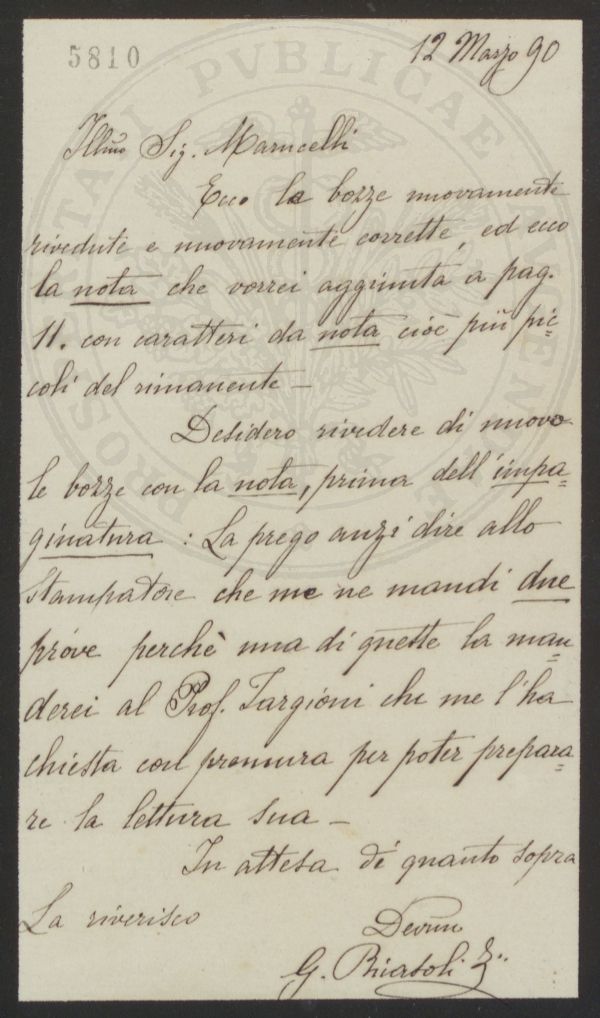 5810
12 Marzo 90
Illmo Sig. Marucelli
Ecco le bozze nuovamente
rivedute e nuovamente corrette, ed ecco
la nota che vorrei aggiunta a pag.
11. con caratteri da nota cioè più pic=
coli del rimanente —
Desidero rivedere di nuovo
le bozze con la nota, prima dell'impa=
ginatura : La prego anzi dire allo
Stampatore che me ne mandi due
prove perchè una di queste la man=
derei al Prof. Targioni che me l'ha
chiesta con premura per poter prepara=
re la lettura sua —
In attesa di quanto sopra
La riverisco
Devmo
G.
PROSPERITATI PVBLICAE